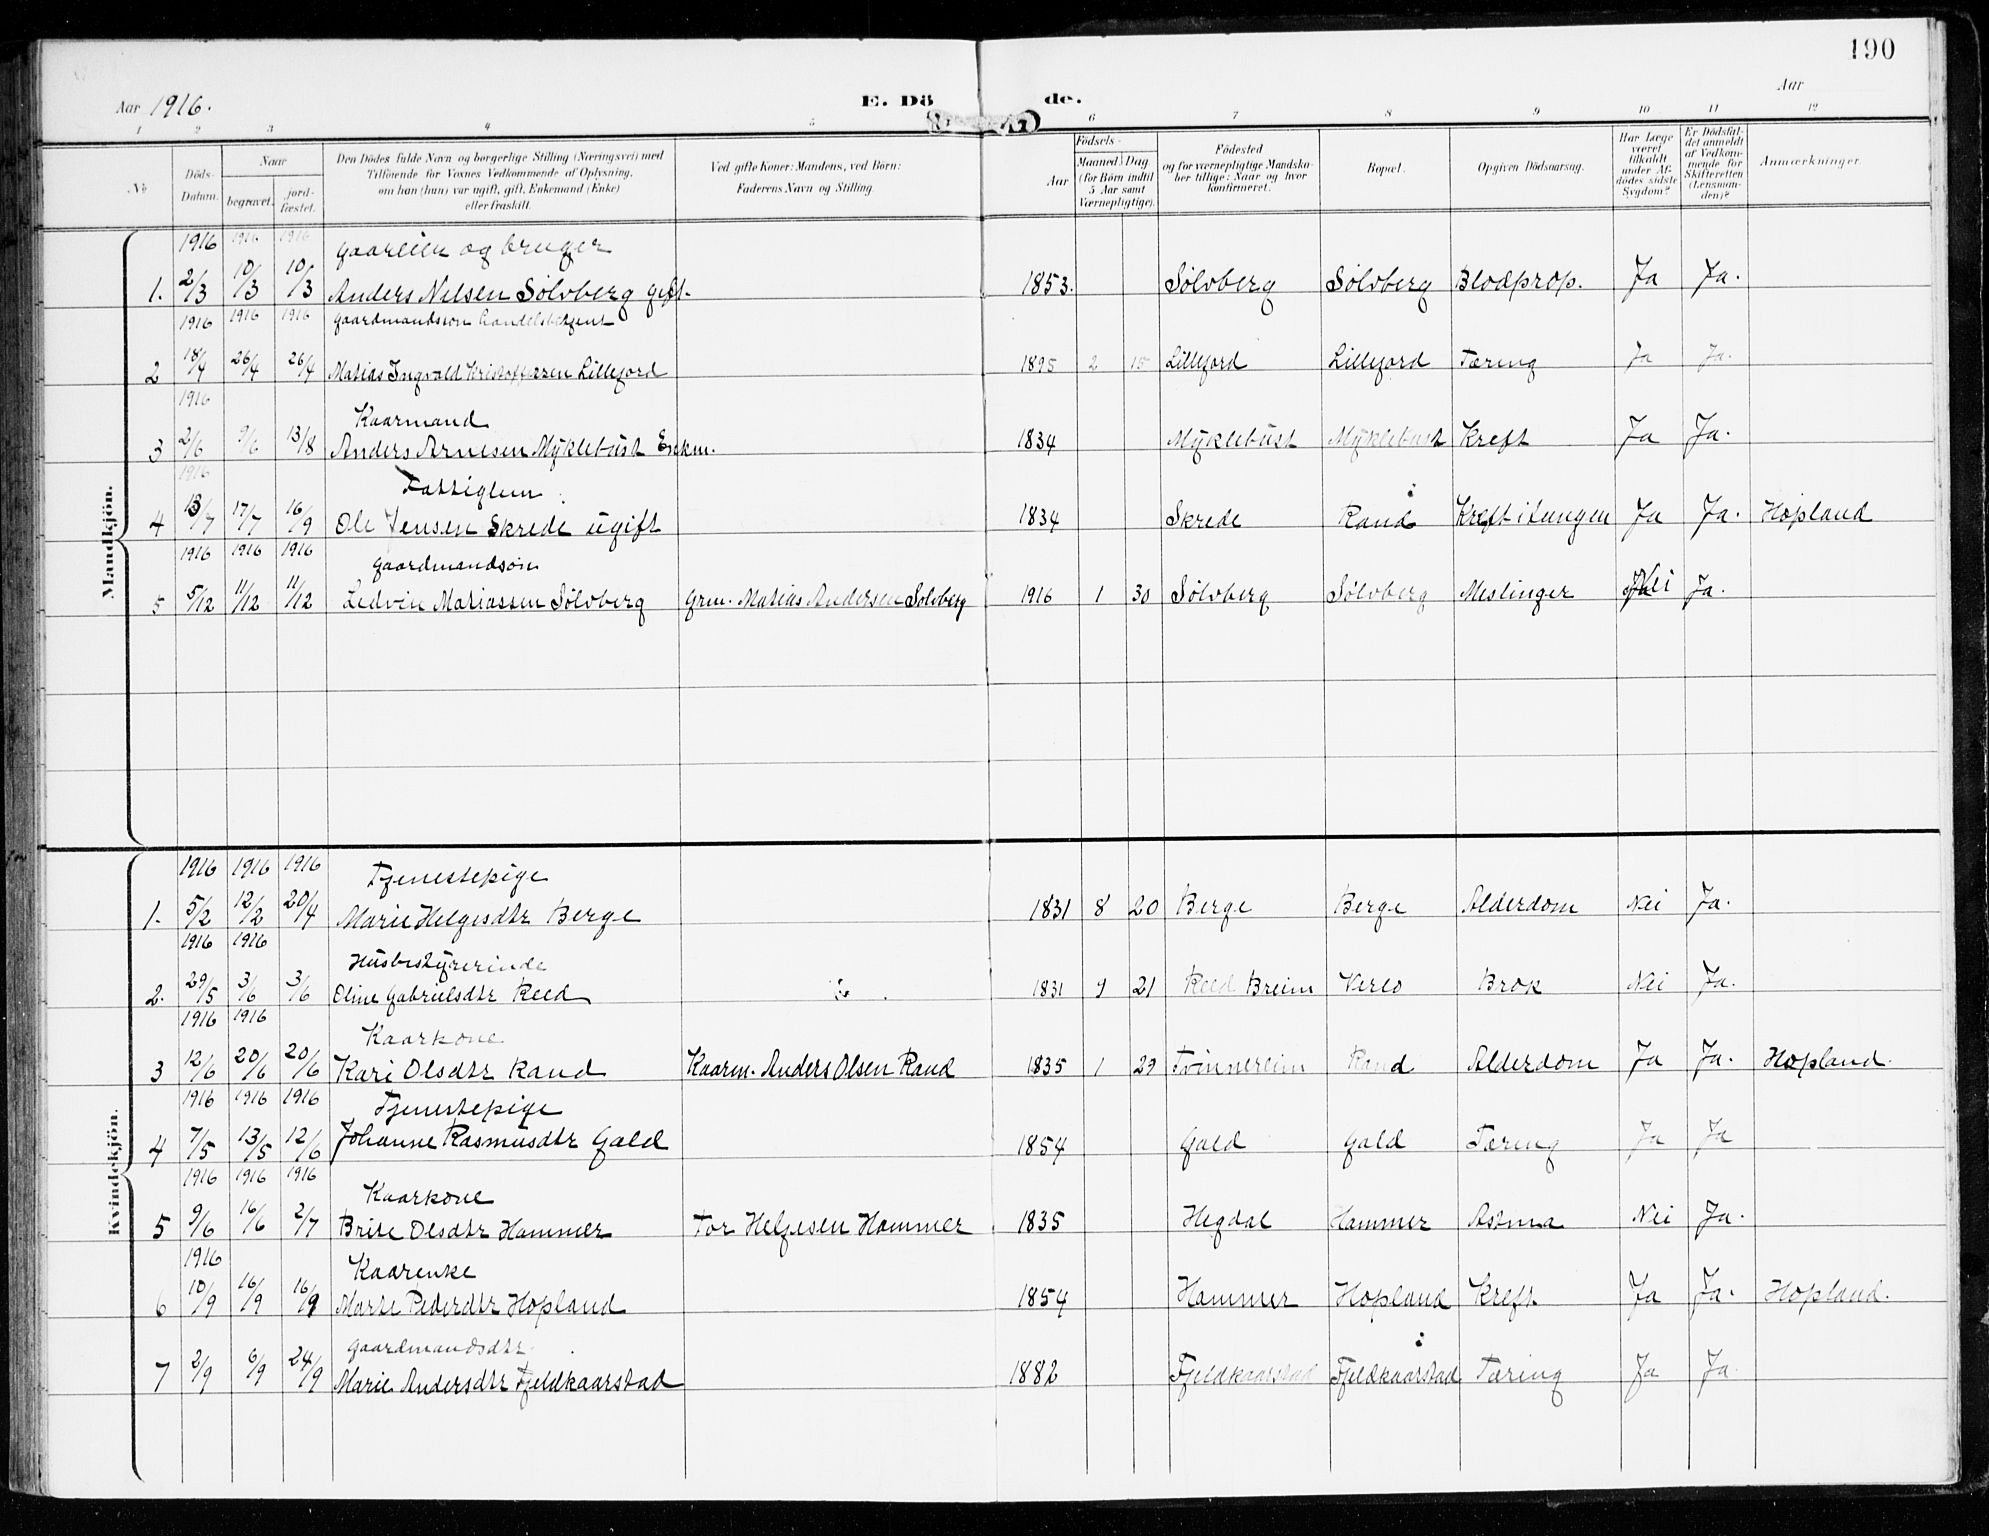 190
Aar 1916. E. Dö de. Aar
1 2 3 4 5 6 7 8 9 10 11 12
No
Döds-Datum.
Naar
begravet. jord-fæstet.
Den Dödes fulde Navn og borgerlige Stilling (Næringsvei) med
Tilföiende for Voxnes Vedkommende af Oplysning,
om han (hun) var ugift, gift, Enkemand (Enke)
eller fraskilt.
Ved gifte Koner: Mandens, ved Börn:
Faderens Navn og Stilling.
Födsels-
Aar Maaned Dag
(for Börn indtil
5 Aar samt
Værnepligtige).
Födested
og for værnepligtige Mandska-
ber tillige: Naar og hvor
konfirmeret.
Bopæl.
Opgiven Dödsaarsag.
Har Læge
været
tilkaldt
under Af-
dödes sidste
Sygdom?
Er Dödsfal-
det anmeldt
af Vedkom-
mende for
Skifteretten
(Lensman-
den)?
Anmærkninger.
Mandkjön.
1916 1916 1916 Gaareier og bruger
1. 2/3 10/3 10/3 Anders Nilsen Sølvberg gift. 1853. Sølvberg Sølvberg Blodprop. Ja Ja.
1916 1916 1916 Gaardmandssøn handelsbetjent
2 18/4 26/4 26/4 Matias Ingvald Kristoffersen Lillefjord 1895 2 15 Lillefjord Lillefjord Tæring Ja Ja.
1916 Kaarmand
3 2/6 9/6 13/8 Anders Arnesen Myklebust Enkm. 1834 Myklebust Myklebust Kreft Ja Ja.
1916 Fattiglem
4 13/7 17/7 16/9 Ole Jensen Skrede ugift 1834 Skrede Rand Kreft i lungen Ja Ja. Hopland
1916 1916 1916 Gaardmandsøn
5 5/12 11/12 11/12 Ledvin Matiassen Sølvberg Grm. Matias Andersen Sølvberg 1916 1 30 Sølvberg Sølvberg Meslinger Nei Ja.
Kvindekjön.
1916 1916 1916 Tjenestepige
1. 5/2 12/2 20/4 Marie Helgesdtr Berge 1831 8 20 Berge Berge Alderdom Nei Ja.
1916 1916 Husbestyrerinde
2. 29/5 3/6 3/6 Oline Gabrielsdtr Reed 1831 9 21 Reed Breim Vereo Brok Nei Ja.
1916 1916 Kaarkone
3 12/6 20/6 20/6 Kari Olsdtr Rand Kaarm. Anders Olsen Rand 1835 1 29 Tvinnereim Rand Alderdom Ja Ja. Hopland.
1916 1916 1916 Tjenestepige
4 7/5 13/5 12/6 Johanne Rasmusdtr Gald 1854 Gald Gald Tæring Ja Ja
1916 1916 1916 Kaarkone
5 9/6 16/6 2/7 Brite Olsdtr Hammer Tor Helgesen Hammer 1835 Hegdal Hammer Astma Nei Ja.
1916 Kaarenke
6 10/9 16/9 16/9 Marte Pedersdtr Hopland 1854 Hammer Hopland Kreft Ja Ja. Hopland.
Gaardmandsdtr.
7 2/9 6/9 24/9 Marie Andersdtr Fjeldkaarstad 1882 Fjeldkaarstad Fjeldkaarstad Tæring Ja Ja.